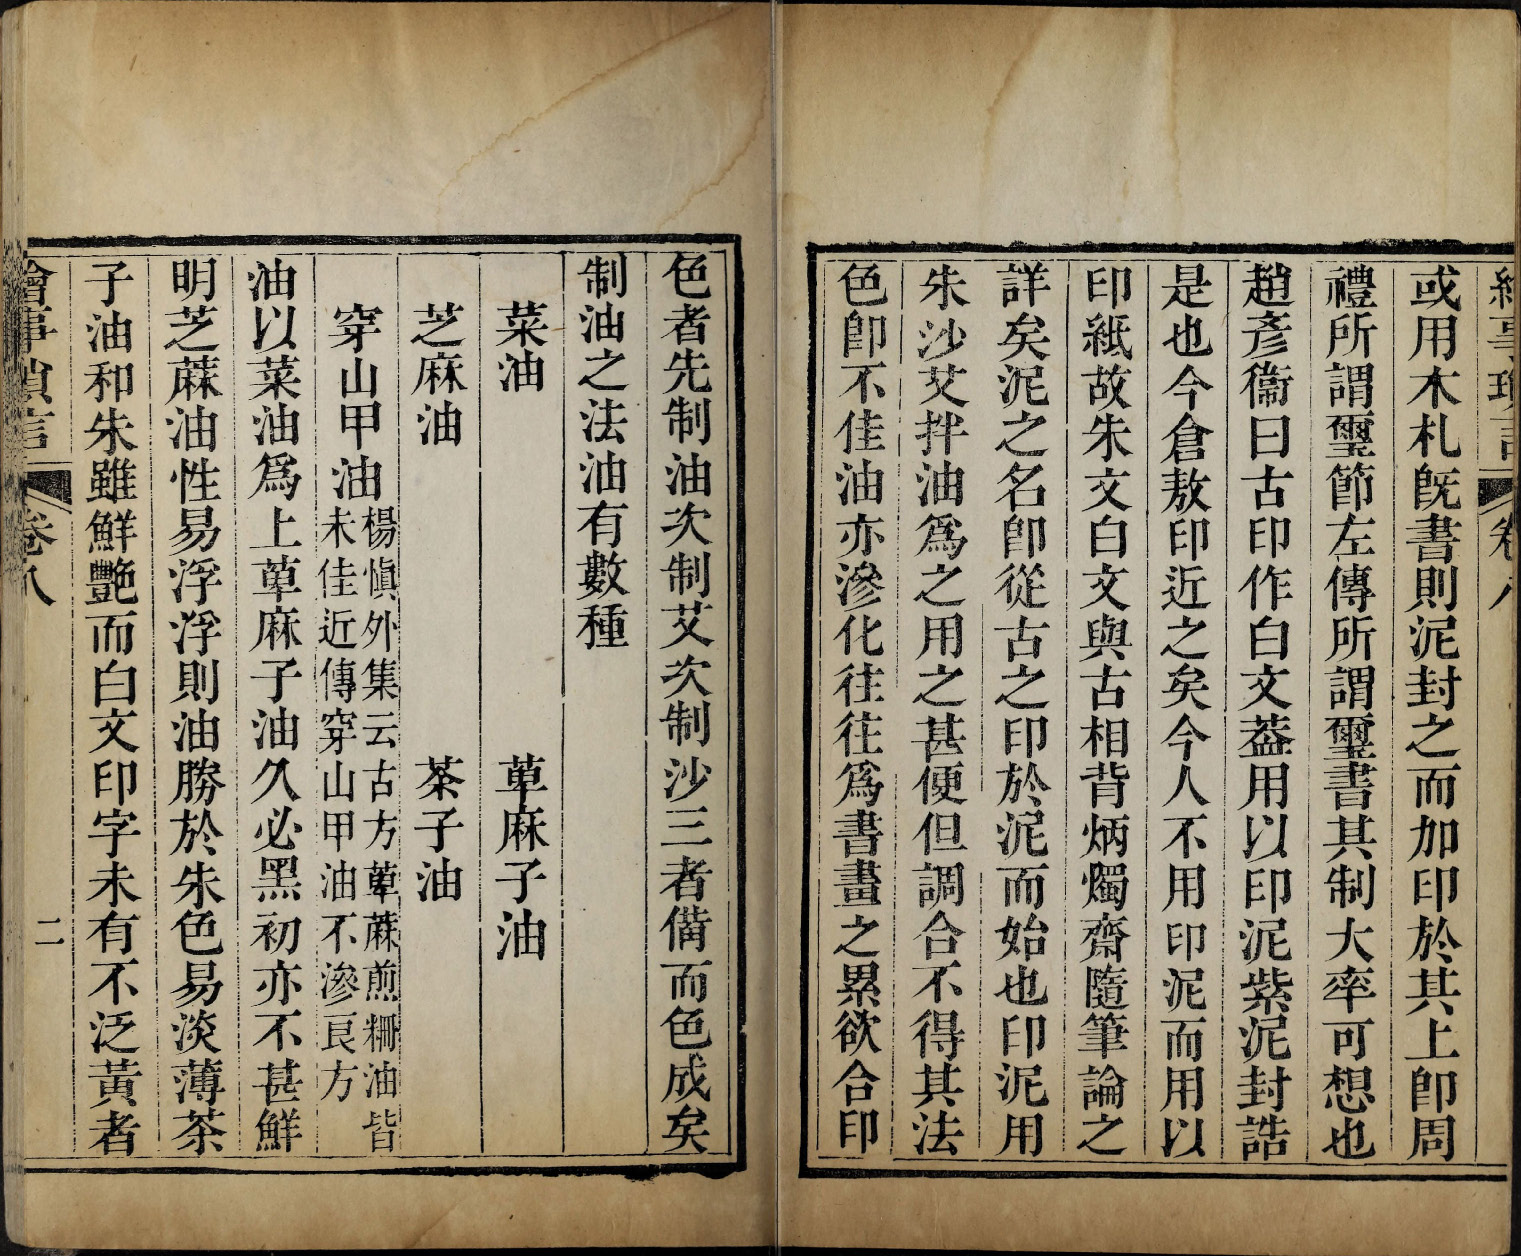 繪事瑣言 卷八
或用木札旣書則泥封之而加印於其上卽周
禮所謂璽節左傳所謂璽書其制大率可想也
趙彥衞曰古印作白文葢用以印泥紫泥封誥
是也今倉敖印近之矣今人不用印泥而用以
印紙故朱文白文與古相背炳燭齋隨筆論之
詳矣泥之名卽從古之印於泥而始也印泥用
朱沙艾拌油爲之用之甚便但調合不得其法
色卽不佳油亦滲化往往爲書畫之累欲合印
色者先制油次制艾次制沙三者備而色成矣
制油之法油有數種
菜油 蓖麻子油
芝麻油 茶子油
穿山甲油 楊愼外集云古方蓖蔴煎粣油皆
未佳近傳穿山甲油不滲良方
油以菜油爲上蓖麻子油久必黑初亦不甚鮮
明芝蔴油性易浮浮則油勝於朱色易淡薄茶
子油和朱雖鮮艷而白文印字未有不泛黃者
繪事瑣言 卷八 二